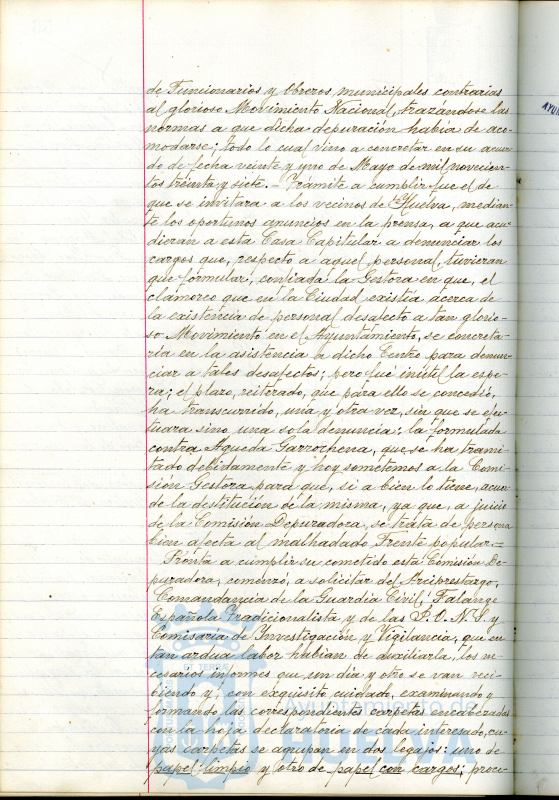 de Funcionarios y Obreros municipales contrarias
al glorioso Movimiento Nacional, trazándose las
normas a que dicha depuración habia de aco-
modarse; todo lo cual vino a concretar en su acuer-
do de fecha veinte y uno de Mayo de mil novecien-
tos treinta y siete. = Trámite a cumplir fue el de
que se invitara a los vecinos de Huelva, median-
te los oportunos anuncios en la prensa, a que acu-
dieran a esta Casa Capitular a denunciar los
cargos que, respecto a aquel personal, tuvieran
que formular, confiada la Gestora en que, el
clamoreo que en la Ciudad existía acerca de
la existencia de personal desafecto a tan glorio-
so Movimiento en el Ayuntamiento, se concreta-
ría en la asistencia a dicho Centro para denun-
ciar a tales desafectos; pero fue inútil la espe-
ra; el plazo, reiterado, que para ello se concedió,
ha transcurrido, una y otra vez, sin que se efec-
tuara sino una sola denuncia: la formulada
contra Agueda Garrochena, que se ha trami-
tado debidamente y hoy sometemos a la Comi-
sión Gestora para que, si a bien lo tiene, acuer-
de la destitución de la misma, ya que, a juicio
de la Comisión Depuradora, se trata de persona
bien afecta al malhadado Frente popular. =
Pronta a cumplir su cometido esta Comisión De-
puradora, comenzó, a solicitar del Arciprestazgo,
Comandancia de la Guardia Civil, Falange
Española Tradicionalista y de las J.O.N.S. y
Comisaría de Investigación y Vigilancia, que en
tan ardua labor habian de auxiliarla, los ne-
cesarios informes que un día y otro se van reci-
biendo y, con exquisito cuidado, examinando y
formando las correspondientes carpetas encabezadas
con la hoja declaratoria de cada interesado, cu-
yas carpetas se agrupan en dos legajos: uno de
papel limpio y otro de papel con cargos; proce-
AYUN
Ayuntamiento de
HUELVA